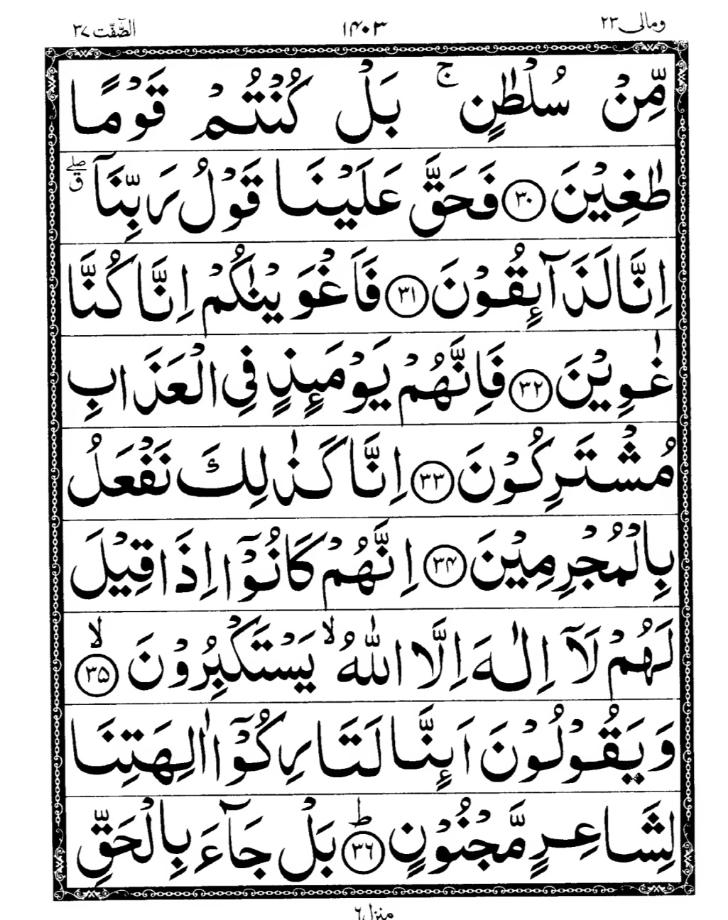 ومالى ٢٣ ١٤٠٣ الصّٰفّٰت ٣٧
مِّنْ سُلْطٰنٍ ۚ بَلْ كُنْتُمْ قَوْمًا
طٰغِيْنَ ﴿٣٠﴾ فَحَقَّ عَلَيْنَا قَوْلُ رَبِّنَاۤ ۖق
اِنَّا لَذَآئِقُوْنَ ﴿٣١﴾ فَاَغْوَيْنٰكُمْ اِنَّا كُنَّا
غٰوِيْنَ ﴿٣٢﴾ فَاِنَّهُمْ يَوْمَئِذٍ فِى الْعَذَابِ
مُشْتَرِكُوْنَ ﴿٣٣﴾ اِنَّا كَذٰلِكَ نَفْعَلُ
بِالْمُجْرِمِيْنَ ﴿٣٤﴾ اِنَّهُمْ كَانُوْۤا اِذَا قِيْلَ
لَهُمْ لَاۤ اِلٰهَ اِلَّا اللّٰهُ ۙ يَسْتَكْبِرُوْنَ ۙ﴿٣٥﴾
وَيَقُوْلُوْنَ اَئِنَّا لَتَارِكُوْۤا اٰلِهَتِنَا
لِشَاعِرٍ مَّجْنُوْنٍ ؕ﴿٣٦﴾ بَلْ جَآءَ بِالْحَقِّ
منزل ٦